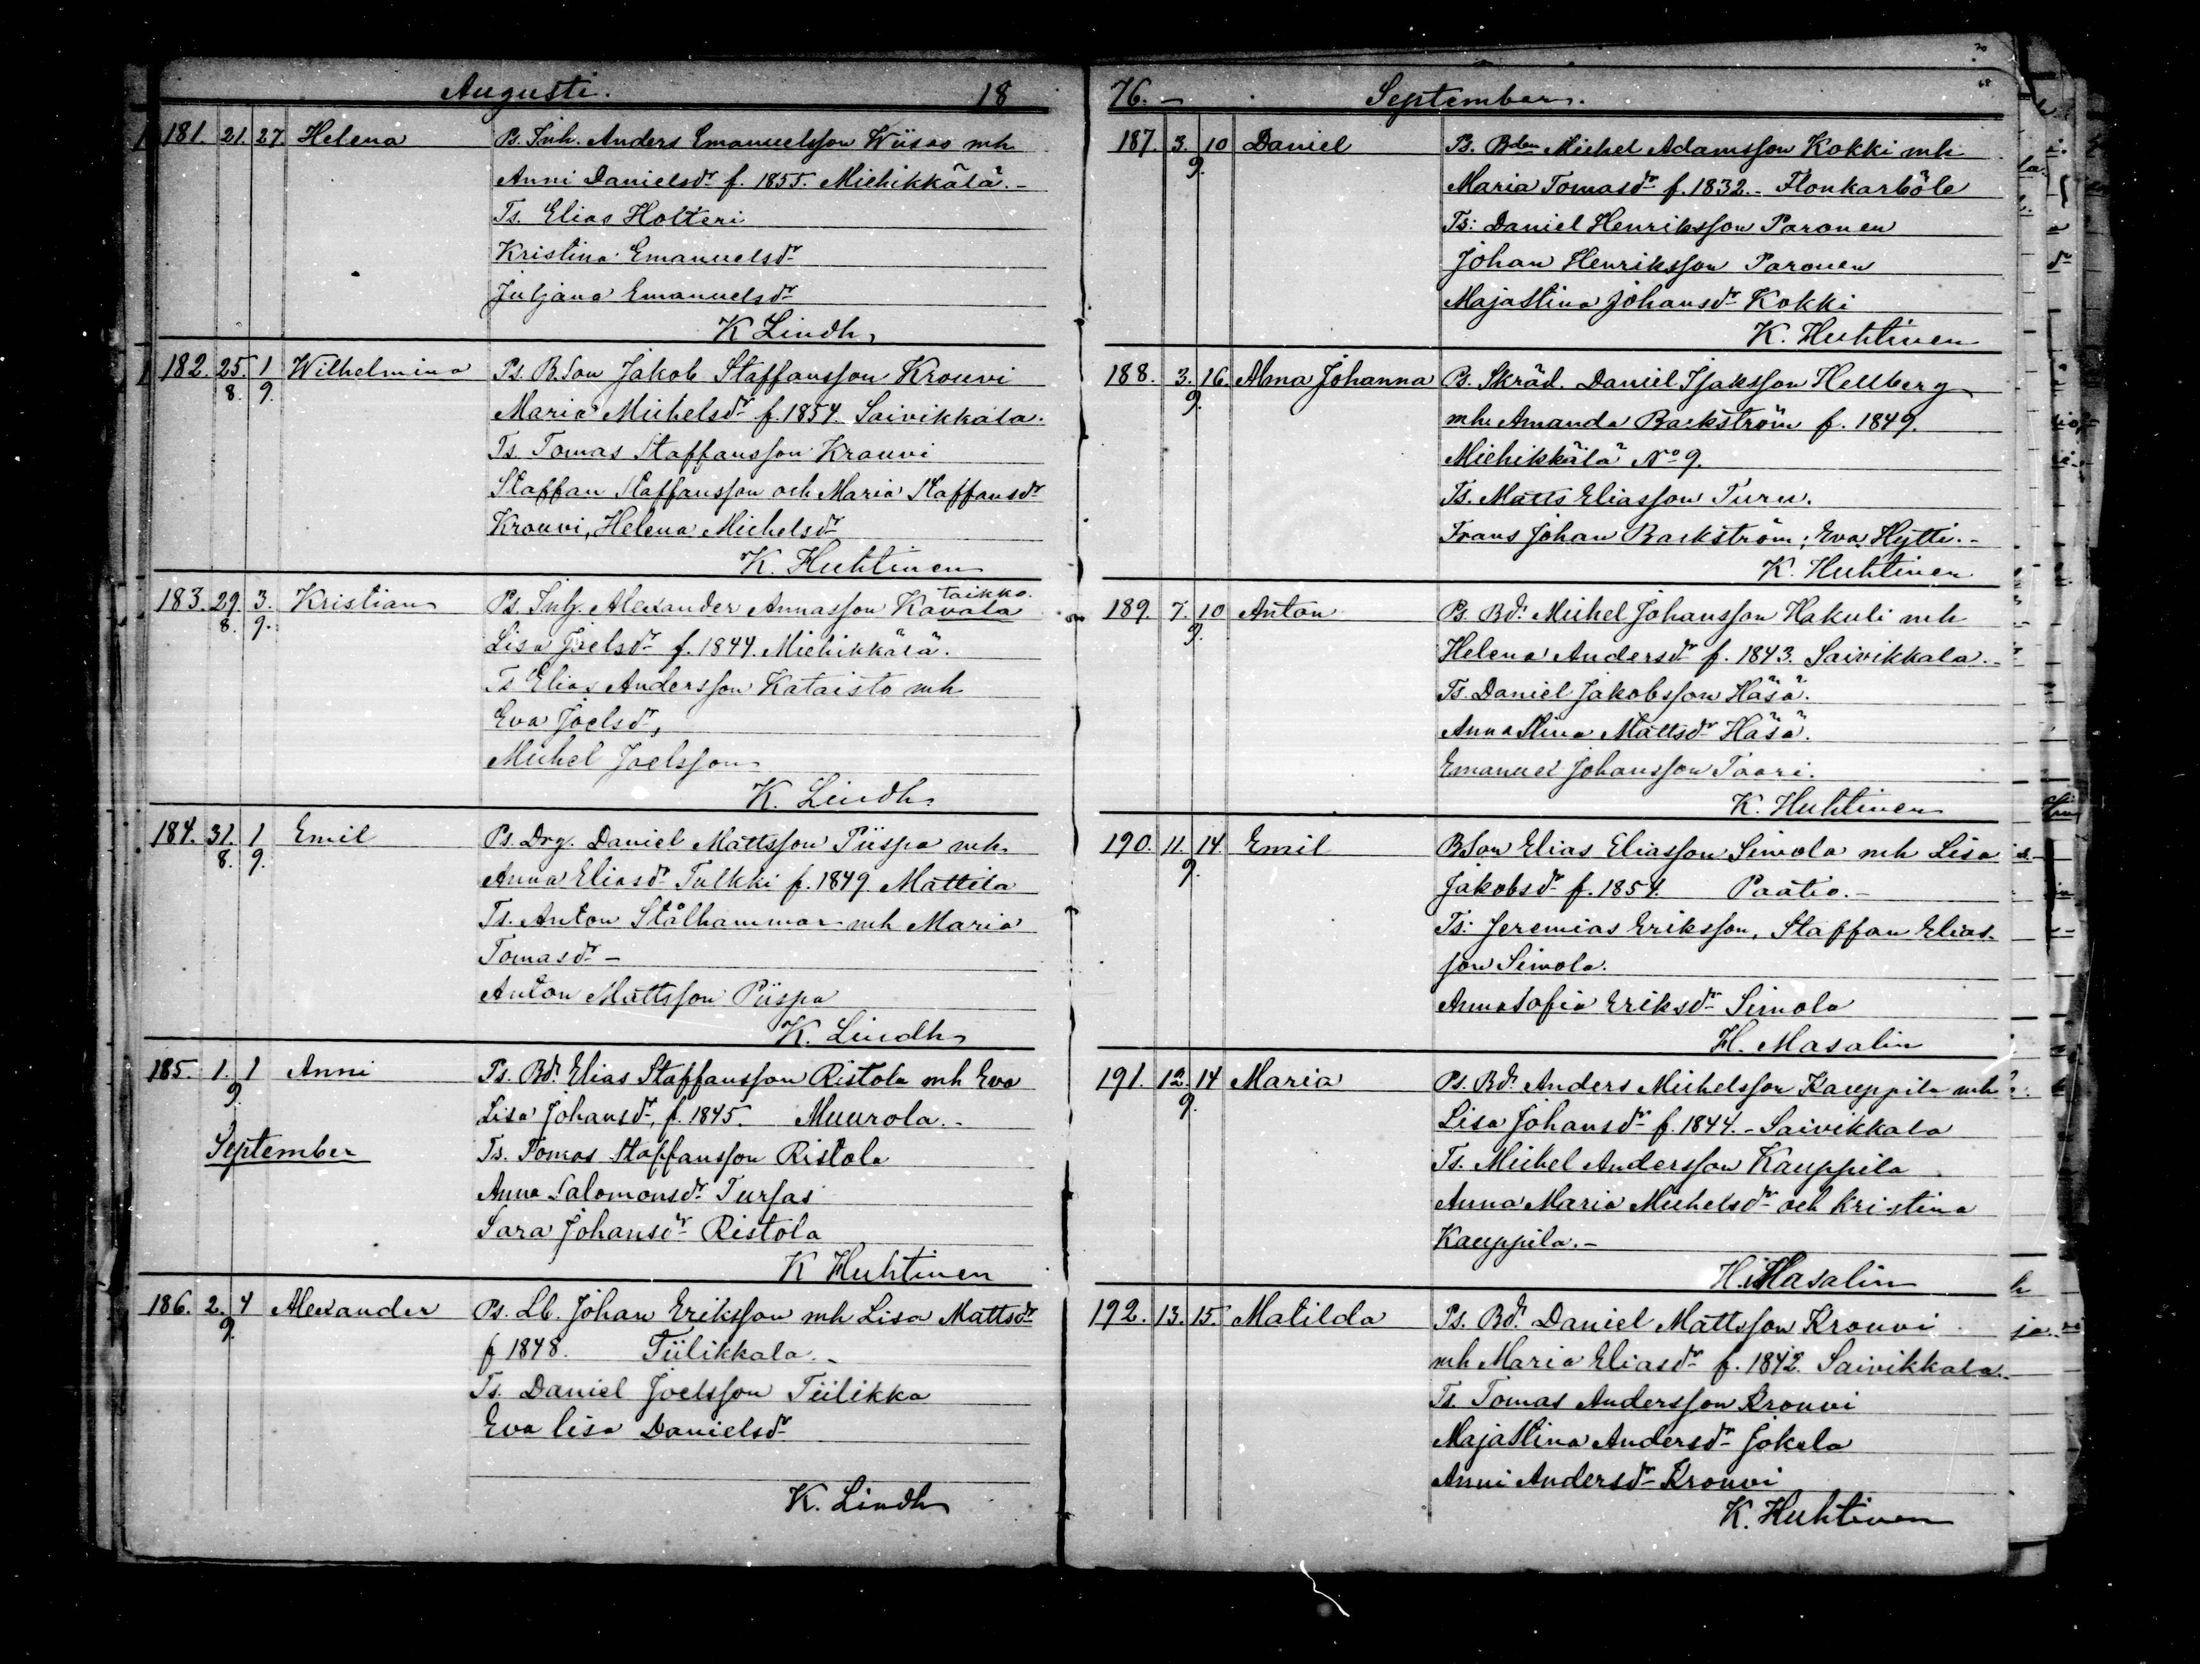 Augusti. 18
181. 21. 27. Helena Ps. Inh. Anders Emanuelsson Wiisas mh
Anni Danielsdr f. 1855. Miehikkälä. -
Ts. Elias Holteri
Kristina Emanuelsdr
Juljana Emanuelsdr
K Lindh
182. 25. 1 Wilhelmina Ps. B.Son Jakob Staffansson Krouvi
8. 9. Maria Michelsdr f. 1854. Saivikkala.
Ts Tomas Staffansson Krouvi
Staffan Staffansson och Maria Staffansdr
Krouvi, Helena Michelsdr
K. Huhtinen
taikko.
183. 29. 3. Kristian Ps. Inh. Alexander Annasson Kavala
8. 9. Lisa Joelsdr f. 1844. Miehikkälä.
Ts Elias Andersson Kataisto mh
Eva Joelsdr,
Michel Joelsson
K. Lindh.
184. 31. 1 Emil Ps. Drg. Daniel Mattsson Piispa mh.
8. 9. Anna Eliasdr Tulkki f. 1849. Mattila
Ts. Anton Stålhammar mh Maria
Tomasdr -
Anton Mattsson Piispa
K. Lindh
185. 1. 1 Anni Ps. Bdr Elias Staffansson Ristola mh Eva
9. Lisa Johansdr, f. 1845. Muurola. -
September Ts. Tomas Staffansson Ristola
Anna Salomonsdr Tursas
Sara Johansdr Ristola
K Huhtinen
186. 2. 4 Alexander Ps. Lb. Johan Eriksson mh Lisa Mattsdr
9. f 1848. Tiilikkala. -
Ts. Daniel Joelsson Tiilikka
Eva Lisa Danielsdr
K. Lindh
76. - September.
187. 3. 10 Daniel Ps. Bden Michel Adamsson Kokki mh
9. Maria Tomasdr f. 1832. - Flonkarböle
Ts: Daniel Henriksson Paronen
Johan Henriksson Paronen
Maja Stina Johansdr Kokki
K. Huhtinen
188. 3. 16. Alma Johanna Ps. Skräd. Daniel Isaksson Hellberg
9. mh. Amanda Backström f. 1849.
Miehikkälä No 9.
Ts. Matts Eliasson Turu.
Frans Johan Backström; Eva Hytti. -
K. Huhtinen
189. 7. 10 Anton Ps. Bdr Michel Johansson Hakuli mh
9. Helena Andersdr f. 1843. Saivikkala. -
Ts. Daniel Jakobsson Häsä.
Anna Stina Mattsdr Häsä.
Emanuel Johansson Taari.
K. Huhtinen
190. 11. 14. Emil B.Son Elias Eliasson Simola mh Lisa
9. Jakobsdr f. 1854. Paatio. -
Ts: Jeremias Eriksson, Staffan Elias-
son Simola.
Anna Sofia Eriksdr Simola
H. Masalin
191. 12. 14 Maria Ps. Bdr Anders Michelsson Kauppila mh
9. Lisa Johansdr f. 1844. - Saivikkala
Ts. Michel Andersson Kauppila
Anna Maria Michelsdr och Kristina
Kauppila. -
H. Masalin
192. 13. 15. Matilda Ps. Bdr Daniel Mattsson Krouvi
mh Maria Eliasdr f. 1842. Saivikkala. -
Ts. Tomas Andersson Krouvi
Maja Stina Andersdr Jokela
Anni Andersdr Krouvi
K. Huhtinen